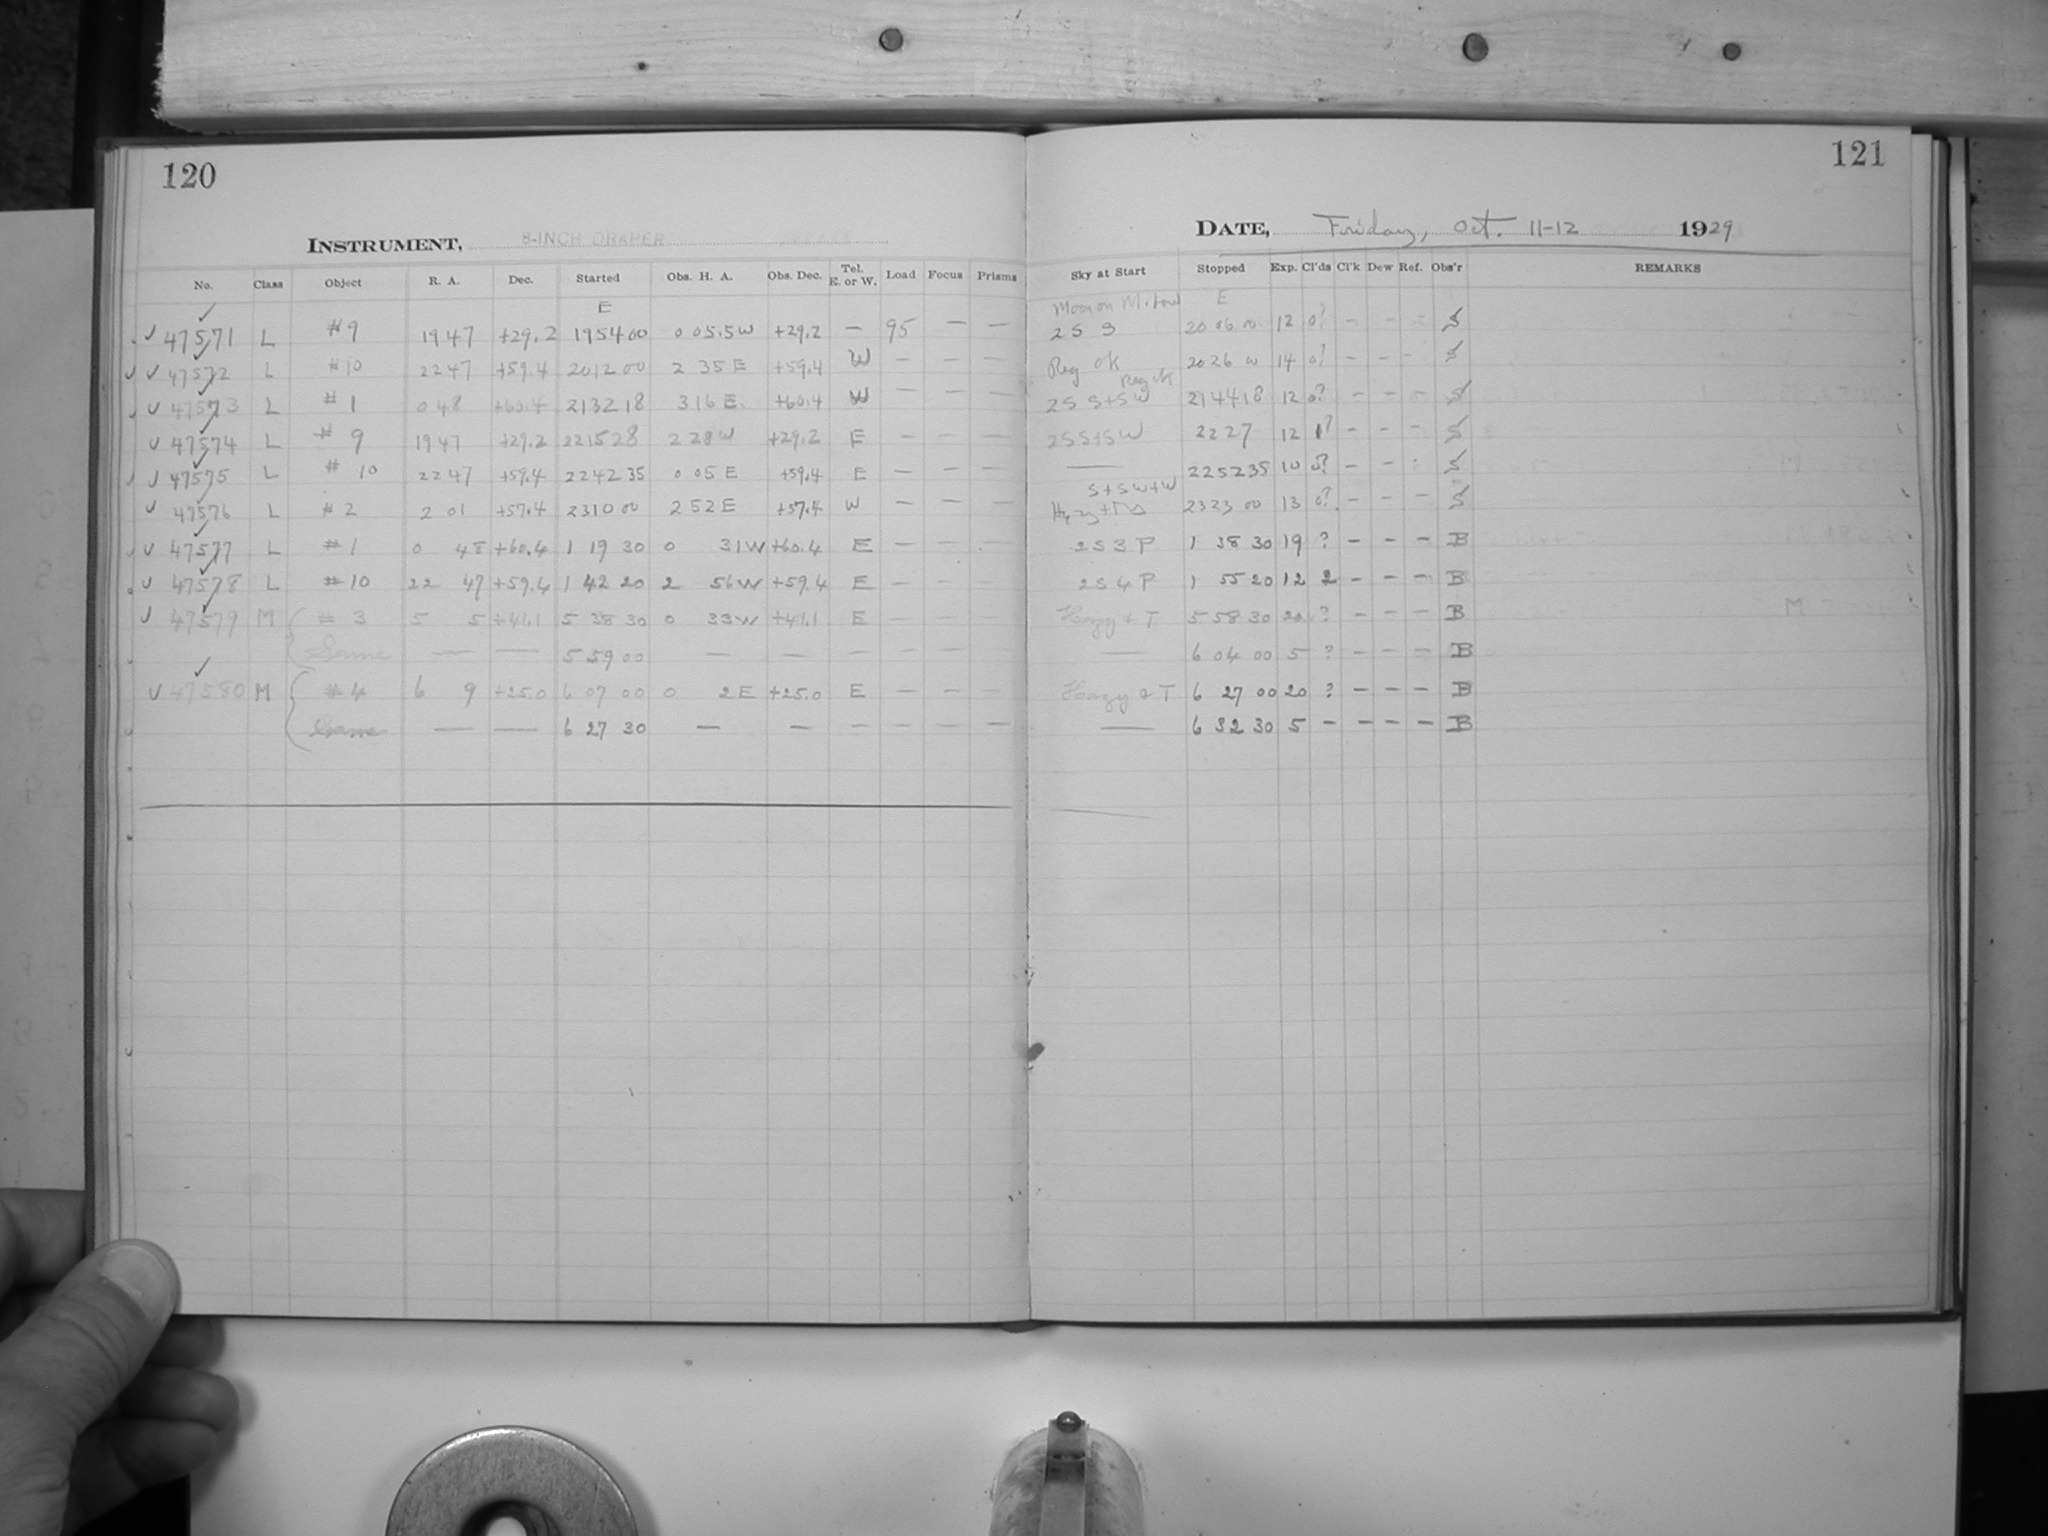 120
INSTRUMENT, 8-INCH DRAPER
No. Class Object R. A. Dec. Started Obs. H. A. Obs. Dec. Tel. E. or W. Load Focus Prisms
E
47571 L #9 19 47 +29.2 19 54 00 0 05.5 W +29.2 — 95 — —
47572 L #10 22 47 +59.4 20 12 00 2 35 E +59.4 W — — —
47573 L #1 0 48 +60.4 21 32 18 3 16 E +60.4 W — — —
47574 L #9 19 47 +29.2 22 15 28 2 28 W +29.2 E — — —
47575 L #10 22 47 +59.4 22 42 35 0 05 E +59.4 E — — —
47576 L #2 2 01 +57.4 23 10 00 2 52 E +57.4 W — — —
47577 L #1 0 48 +60.4 1 19 30 0 31 W +60.4 E — — —
47578 L #10 22 47 +59.4 1 42 20 2 56 W +59.4 E — — —
47579 M #3 5 5 +41.1 5 38 30 0 33 W +41.1 E — — —
Same — — 5 59 00 — — — — — —
47580 M #4 6 9 +25.0 6 07 00 0 2 E +25.0 E — — —
Same — — 6 27 30 — — — — — —
121
DATE, Friday, Oct. 11-12 1929
Sky at Start Stopped Exp. Cl'ds Cl'k Dew Ref. Obs'r REMARKS
Moon E
2 S 3 20 06 00 12 0? — — — S
Reg OK 20 26 00 14 0? — — — S
Reg OK
2 S S+SW 21 44 18 12 0? — — — S
2 S S+SW 22 27 12 1? — — — S
— 22 52 35 10 0? — — — S
S+SW+W
23 23 00 13 0? — — — S
2 S 3 P 1 38 30 19 ? — — — B
2 S 4 P 1 55 20 12 2 — — — B
Hazy & T 5 58 30 20 ? — — — B
— 6 04 00 5 ? — — — B
Hazy & T 6 27 00 20 ? — — — B
— 6 32 30 5 — — — — B